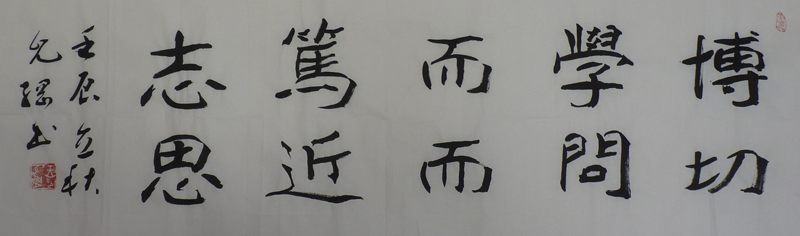 博學而篤志
切問而近思
壬辰立秋
允綱书